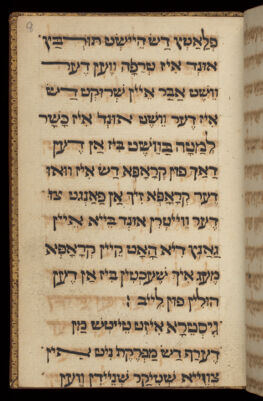 9
פלאטץ דש הייסט תורבץ
אונד איז טרפה ווען דער
וושט אבר איין שרוקט דש
איז דער וושט אונד איז כשר
למטה בוושט ביז אן דען
דאיך פון קראפא דש איז וואו
דער קראפא זיך אן פאנגט צו
דער ווייטרן אונד בייא איין
גאנץ דיא האט קיין קראפא
מעג איך שעכטין ביז אן דען
הולין פון לייב :
גיסטרא איזט טייטש מין
דערף דש מפרקת ניט אין
צווייא שטיקר שניידן ווען